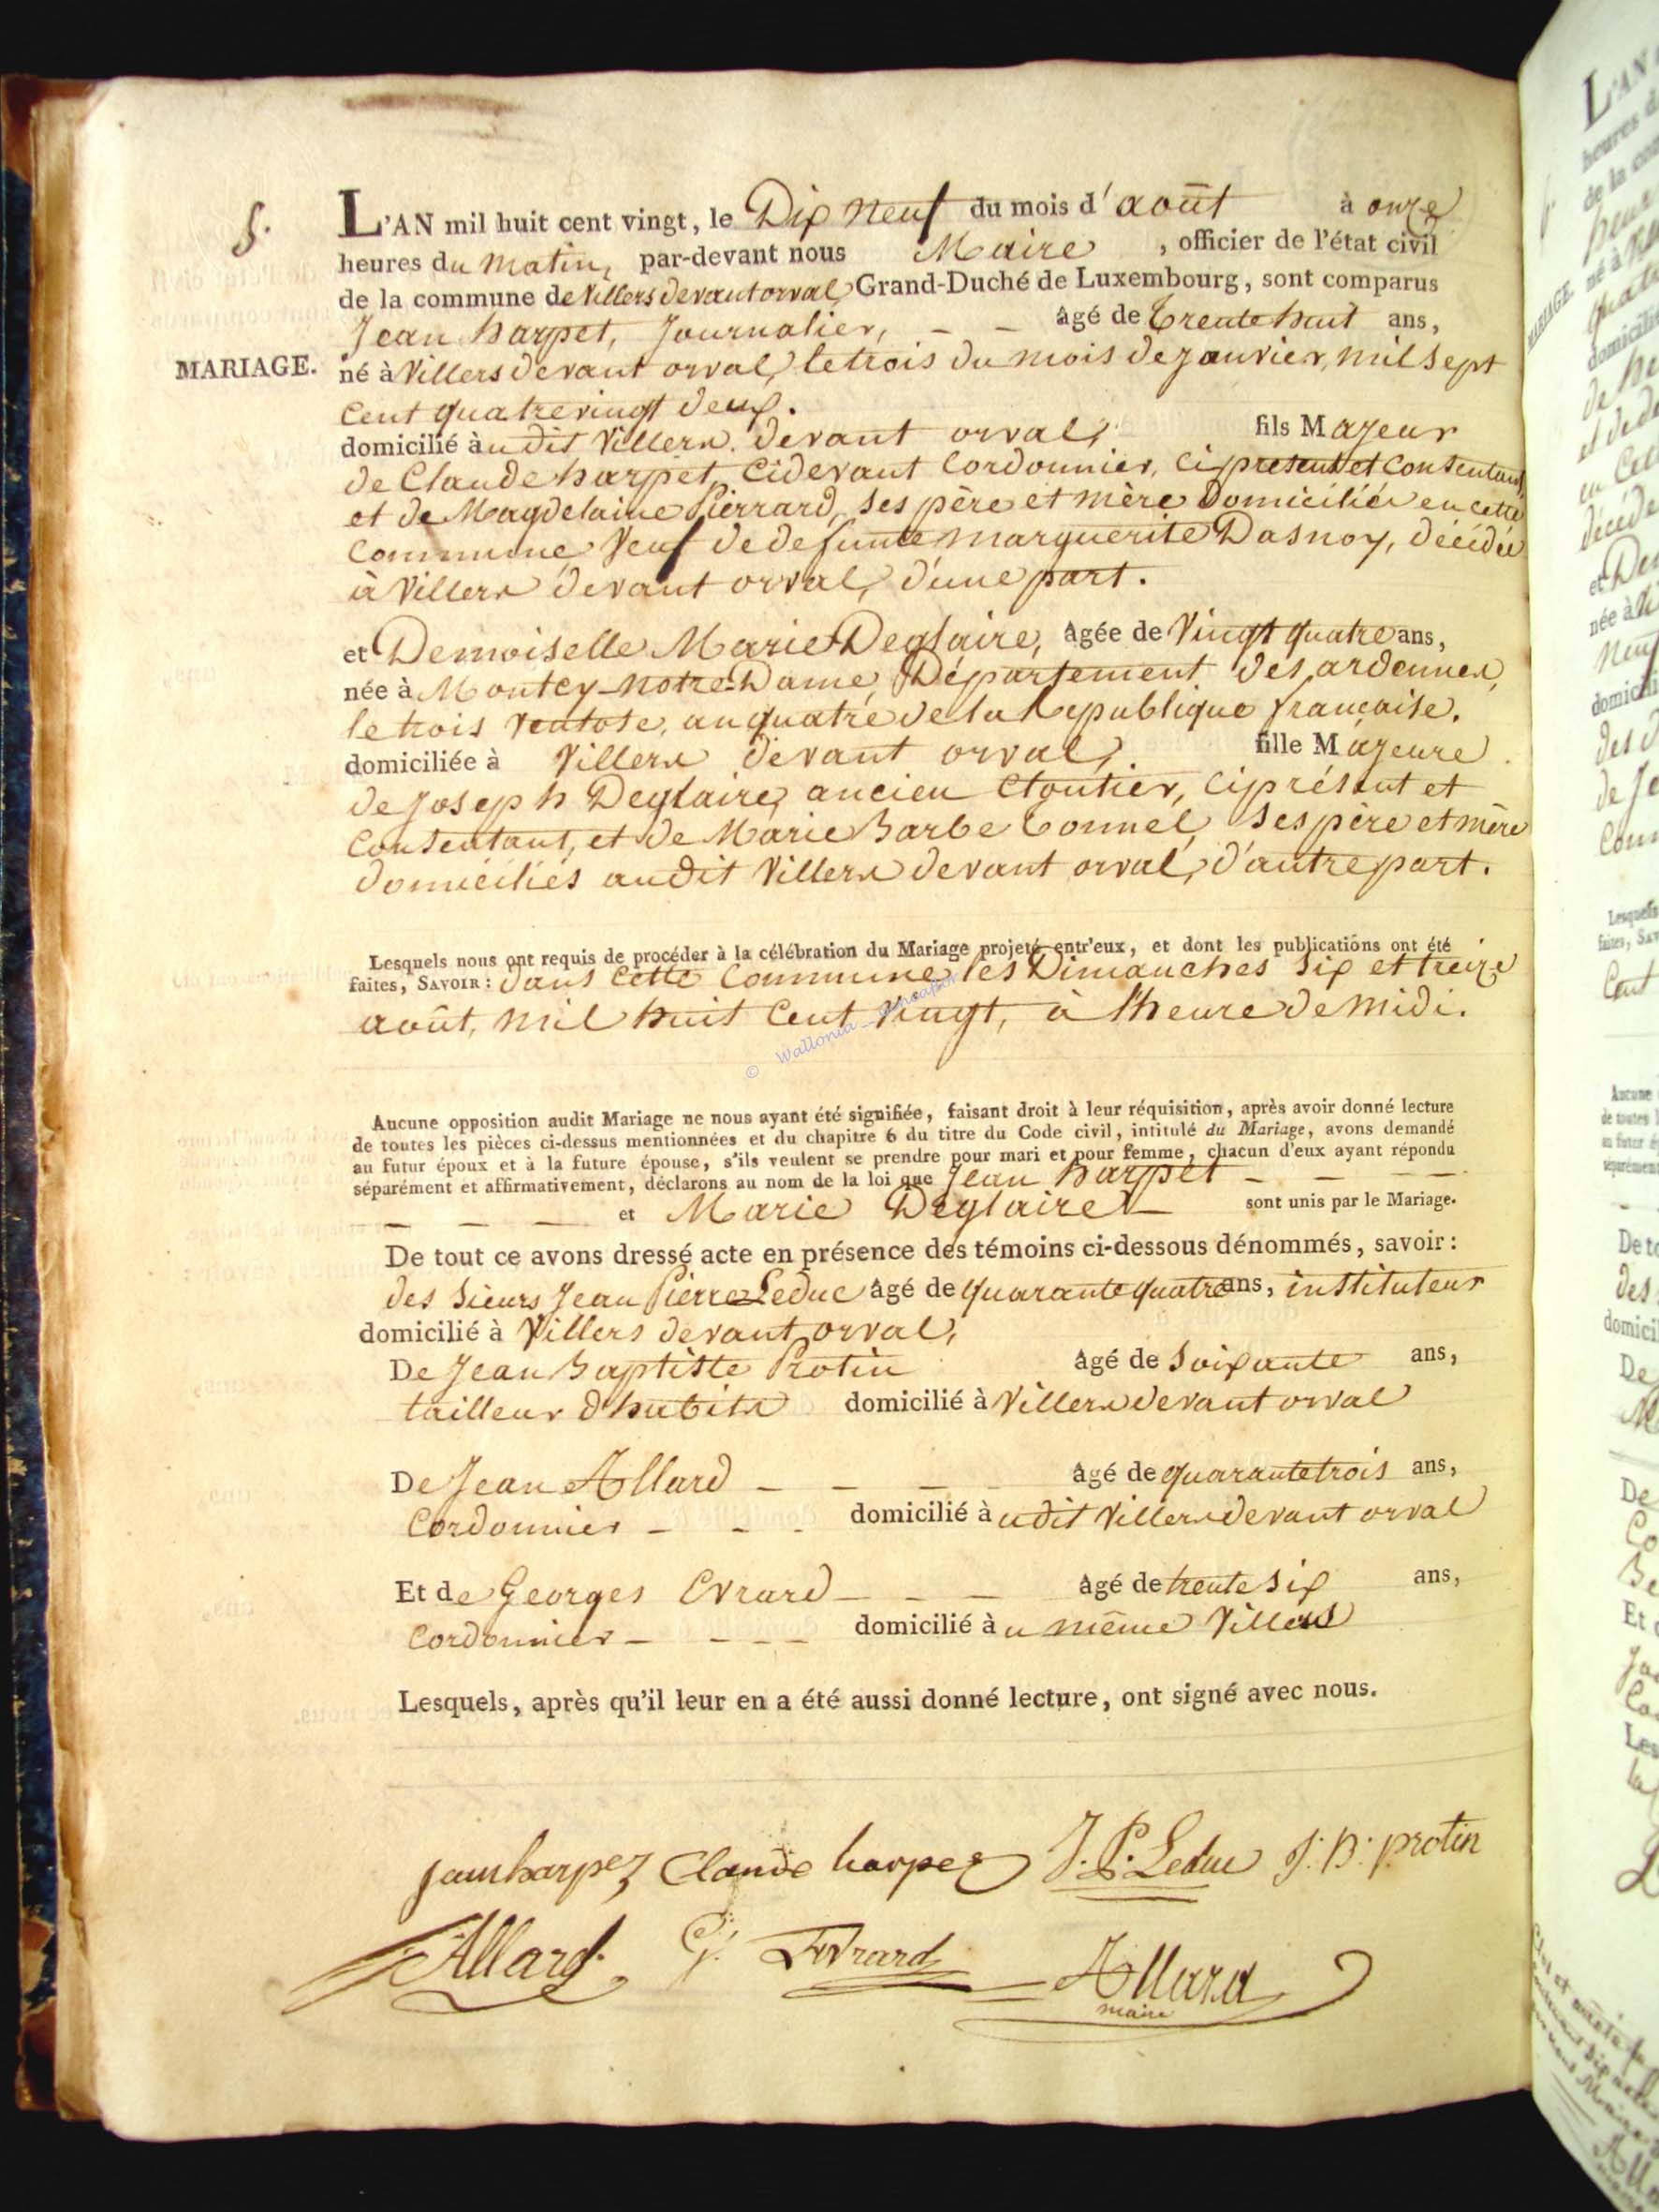 5.
L'AN mil huit cent vingt, le Dix neuf du mois d'août à onze
heures du matin, par-devant nous Maire, officier de l'état civil
de la commune de Villers devant orval, Grand-Duché de Luxembourg, sont comparus
Jean harpet, Journalier, — — âgé de trente huit ans,
MARIAGE.
né à Villers devant orval, le trois du mois de janvier, mil sept
Cent quatrevingt deux.
domicilié audit Villers devant orval, fils Majeur
de Claude harpet, Cidevant Cordonnier, ci présent et consentant,
et de Magdelaine Pierrard, ses père et mère Domiciliés en cette
Commune, Veuf de defunte marguerite Dasnoy, décédée
à Villers devant orval, d'une part.
et Demoiselle Marie Deglaire, âgée de Vingt quatre ans,
née à Montcy-notre-Dame, Département des ardennes,
le trois Ventose, an quatre de la Republique française.
domiciliée à Villers devant orval, fille Majeure
de Joseph Deglaire, ancien Cloutier, ci présent et
Consentant, et de Marie Barbe Connel, Ses père et mère
domiciliés audit Villers devant orval, d'autre part.
Lesquels nous ont requis de procéder à la célébration du Mariage projeté entr'eux, et dont les publications ont été
faites, SAVOIR : dans cette Commune les Dimanches six et treize
août, mil huit Cent Vingt, à l'heure de midi.
Aucune opposition audit Mariage ne nous ayant été signifiée, faisant droit à leur réquisition, après avoir donné lecture
de toutes les pièces ci-dessus mentionnées et du chapitre 6 du titre du Code civil, intitulé du Mariage, avons demandé
au futur époux et à la future épouse, s'ils veulent se prendre pour mari et pour femme, chacun d'eux ayant répondu
séparément et affirmativement, déclarons au nom de la loi que Jean harpet — — —
— — — et Marie Deglaire — sont unis par le Mariage.
De tout ce avons dressé acte en présence des témoins ci-dessous dénommés, savoir :
des Sieurs Jean Pierre Leduc âgé de quarante quatre ans, instituteur
domicilié à Villers devant orval,
De Jean Baptiste Protin âgé de Soixante ans,
tailleur d'habits domicilié à Villers devant orval
De Jean Allard — — — — âgé de quarante trois ans,
Cordonnier — — — domicilié audit Villers devant orval
Et de Georges Evrard — — — âgé de trente six ans,
Cordonnier — — — — domicilié au même Villers
Lesquels, après qu'il leur en a été aussi donné lecture, ont signé avec nous.
Jean harpez Claude harpez J. P. Leduc J: B: protin
J Allard. G. Evrard Allard
maire